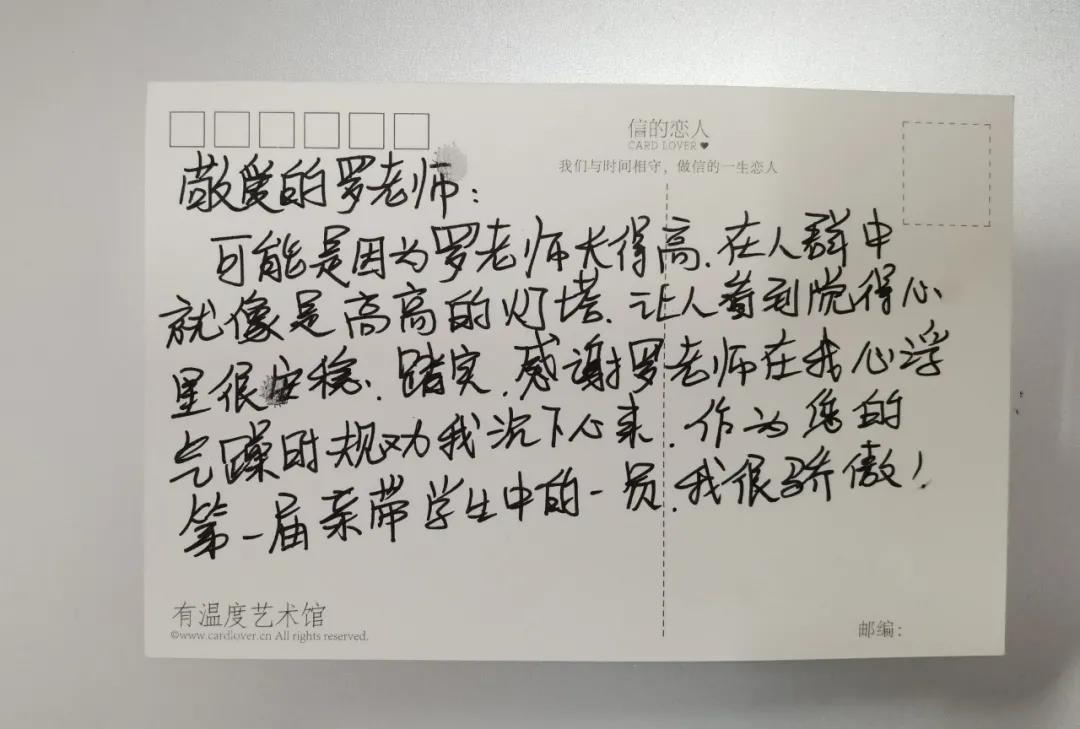 信的恋人
CARD LOVER♥
我们与时间相守，做信的一生恋人
敬爱的罗老师：
可能是因为罗老师长得高，在人群中
就像是高高的灯塔，让人看到觉得心
里很安稳、踏实，感谢罗老师在我心浮
气躁时规劝我沉下心来，作为您的
第一届亲带学生中的一员，我很骄傲！
有温度艺术馆
©www.cardlover.cn All rights reserved.
邮编：